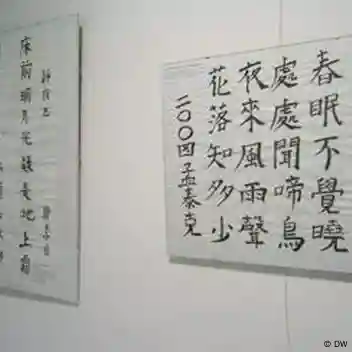 春眠不覺曉
處處聞啼鳥
夜來風雨聲
花落知多少
二〇〇四孟泰克
靜夜思
床前明月光疑是地上霜
© DW